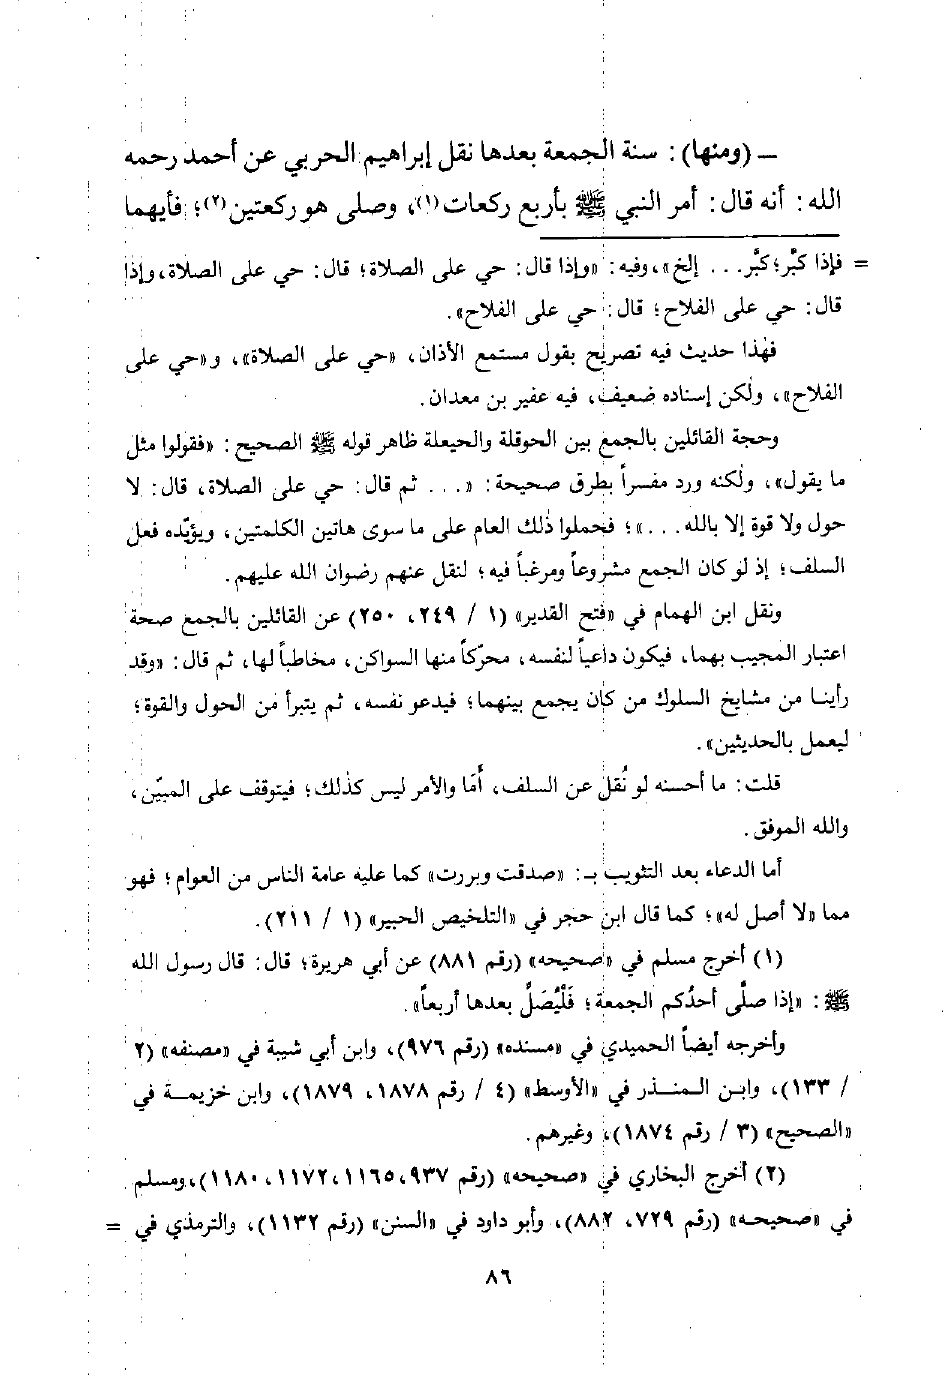 ـ (ومنها) : سنة الجمعة بعدها نقل إبراهيم الحربي عن أحمد رحمه
الله : أنه قال : أمر النبي ﷺ بأربع ركعات(١)، وصلى هو ركعتين(٢)؛ فأيهما
= فإذا كبَّر؛ كبَّر . . . إلخ»، وفيه : «وإذا قال : حي على الصلاة؛ قال : حي على الصلاة، وإذا
قال : حي على الفلاح؛ قال : حي على الفلاح» .
فهٰذا حديث فيه تصريح بقول مستمع الأذان، «حي على الصلاة»، و«حي على
الفلاح»، ولٰكن إسناده ضعيف، فيه عفير بن معدان .
وحجة القائلين بالجمع بين الحوقلة والحيعلة ظاهر قوله ﷺ الصحيح : «فقولوا مثل
ما يقول»، ولٰكنه ورد مفسراً بطرق صحيحة : « . . . ثم قال : حي على الصلاة، قال : لا
حول ولا قوة إلا بالله . . . »؛ فحملوا ذٰلك العام على ما سوى هاتين الكلمتين، ويؤيّده فعل
السلف؛ إذ لو كان الجمع مشروعاً ومرغباً فيه؛ لنقل عنهم رضوان الله عليهم .
ونقل ابن الهمام في «فتح القدير» (١ / ٢٤٩، ٢٥٠) عن القائلين بالجمع صحة
اعتبار المجيب بهما، فيكون داعياً لنفسه، محرّكاً منها السواكن، مخاطباً لها، ثم قال : «وقد
رأينا من مشايخ السلوك من كان يجمع بينهما؛ فيدعو نفسه، ثم يتبرأ من الحول والقوة؛
ليعمل بالحديثين» .
قلت : ما أحسنه لو نُقل عن السلف، أمَا والأمر ليس كذٰلك؛ فيتوقف على المبيّن،
والله الموفق .
أما الدعاء بعد التثويب بـ : «صدقت وبررت» كما عليه عامة الناس من العوام؛ فهو
مما «لا أصل له»؛ كما قال ابن حجر في «التلخيص الحبير» (١ / ٢١١) .
(١) أخرج مسلم في «صحيحه» (رقم ٨٨١) عن أبي هريرة؛ قال : قال رسول الله
ﷺ : «إذا صلَّى أحدُكم الجمعة؛ فَلْيُصَلِّ بعدها أربعاً» .
وأخرجه أيضاً الحميدي في «مسنده» (رقم ٩٧٦)، وابن أبي شيبة في «مصنفه» (٢
/ ١٣٣)، وابن المنذر في «الأوسط» (٤ / رقم ١٨٧٨، ١٨٧٩)، وابن خزيمة في
«الصحيح» (٣ / رقم ١٨٧٤)، وغيرهم .
(٢) أخرج البخاري في «صحيحه» (رقم ٩٣٧، ١١٦٥، ١١٧٢، ١١٨٠)، ومسلم
في «صحيحه» (رقم ٧٢٩، ٨٨٢)، وأبو داود في «السنن» (رقم ١١٣٢)، والترمذي في =
٨٦